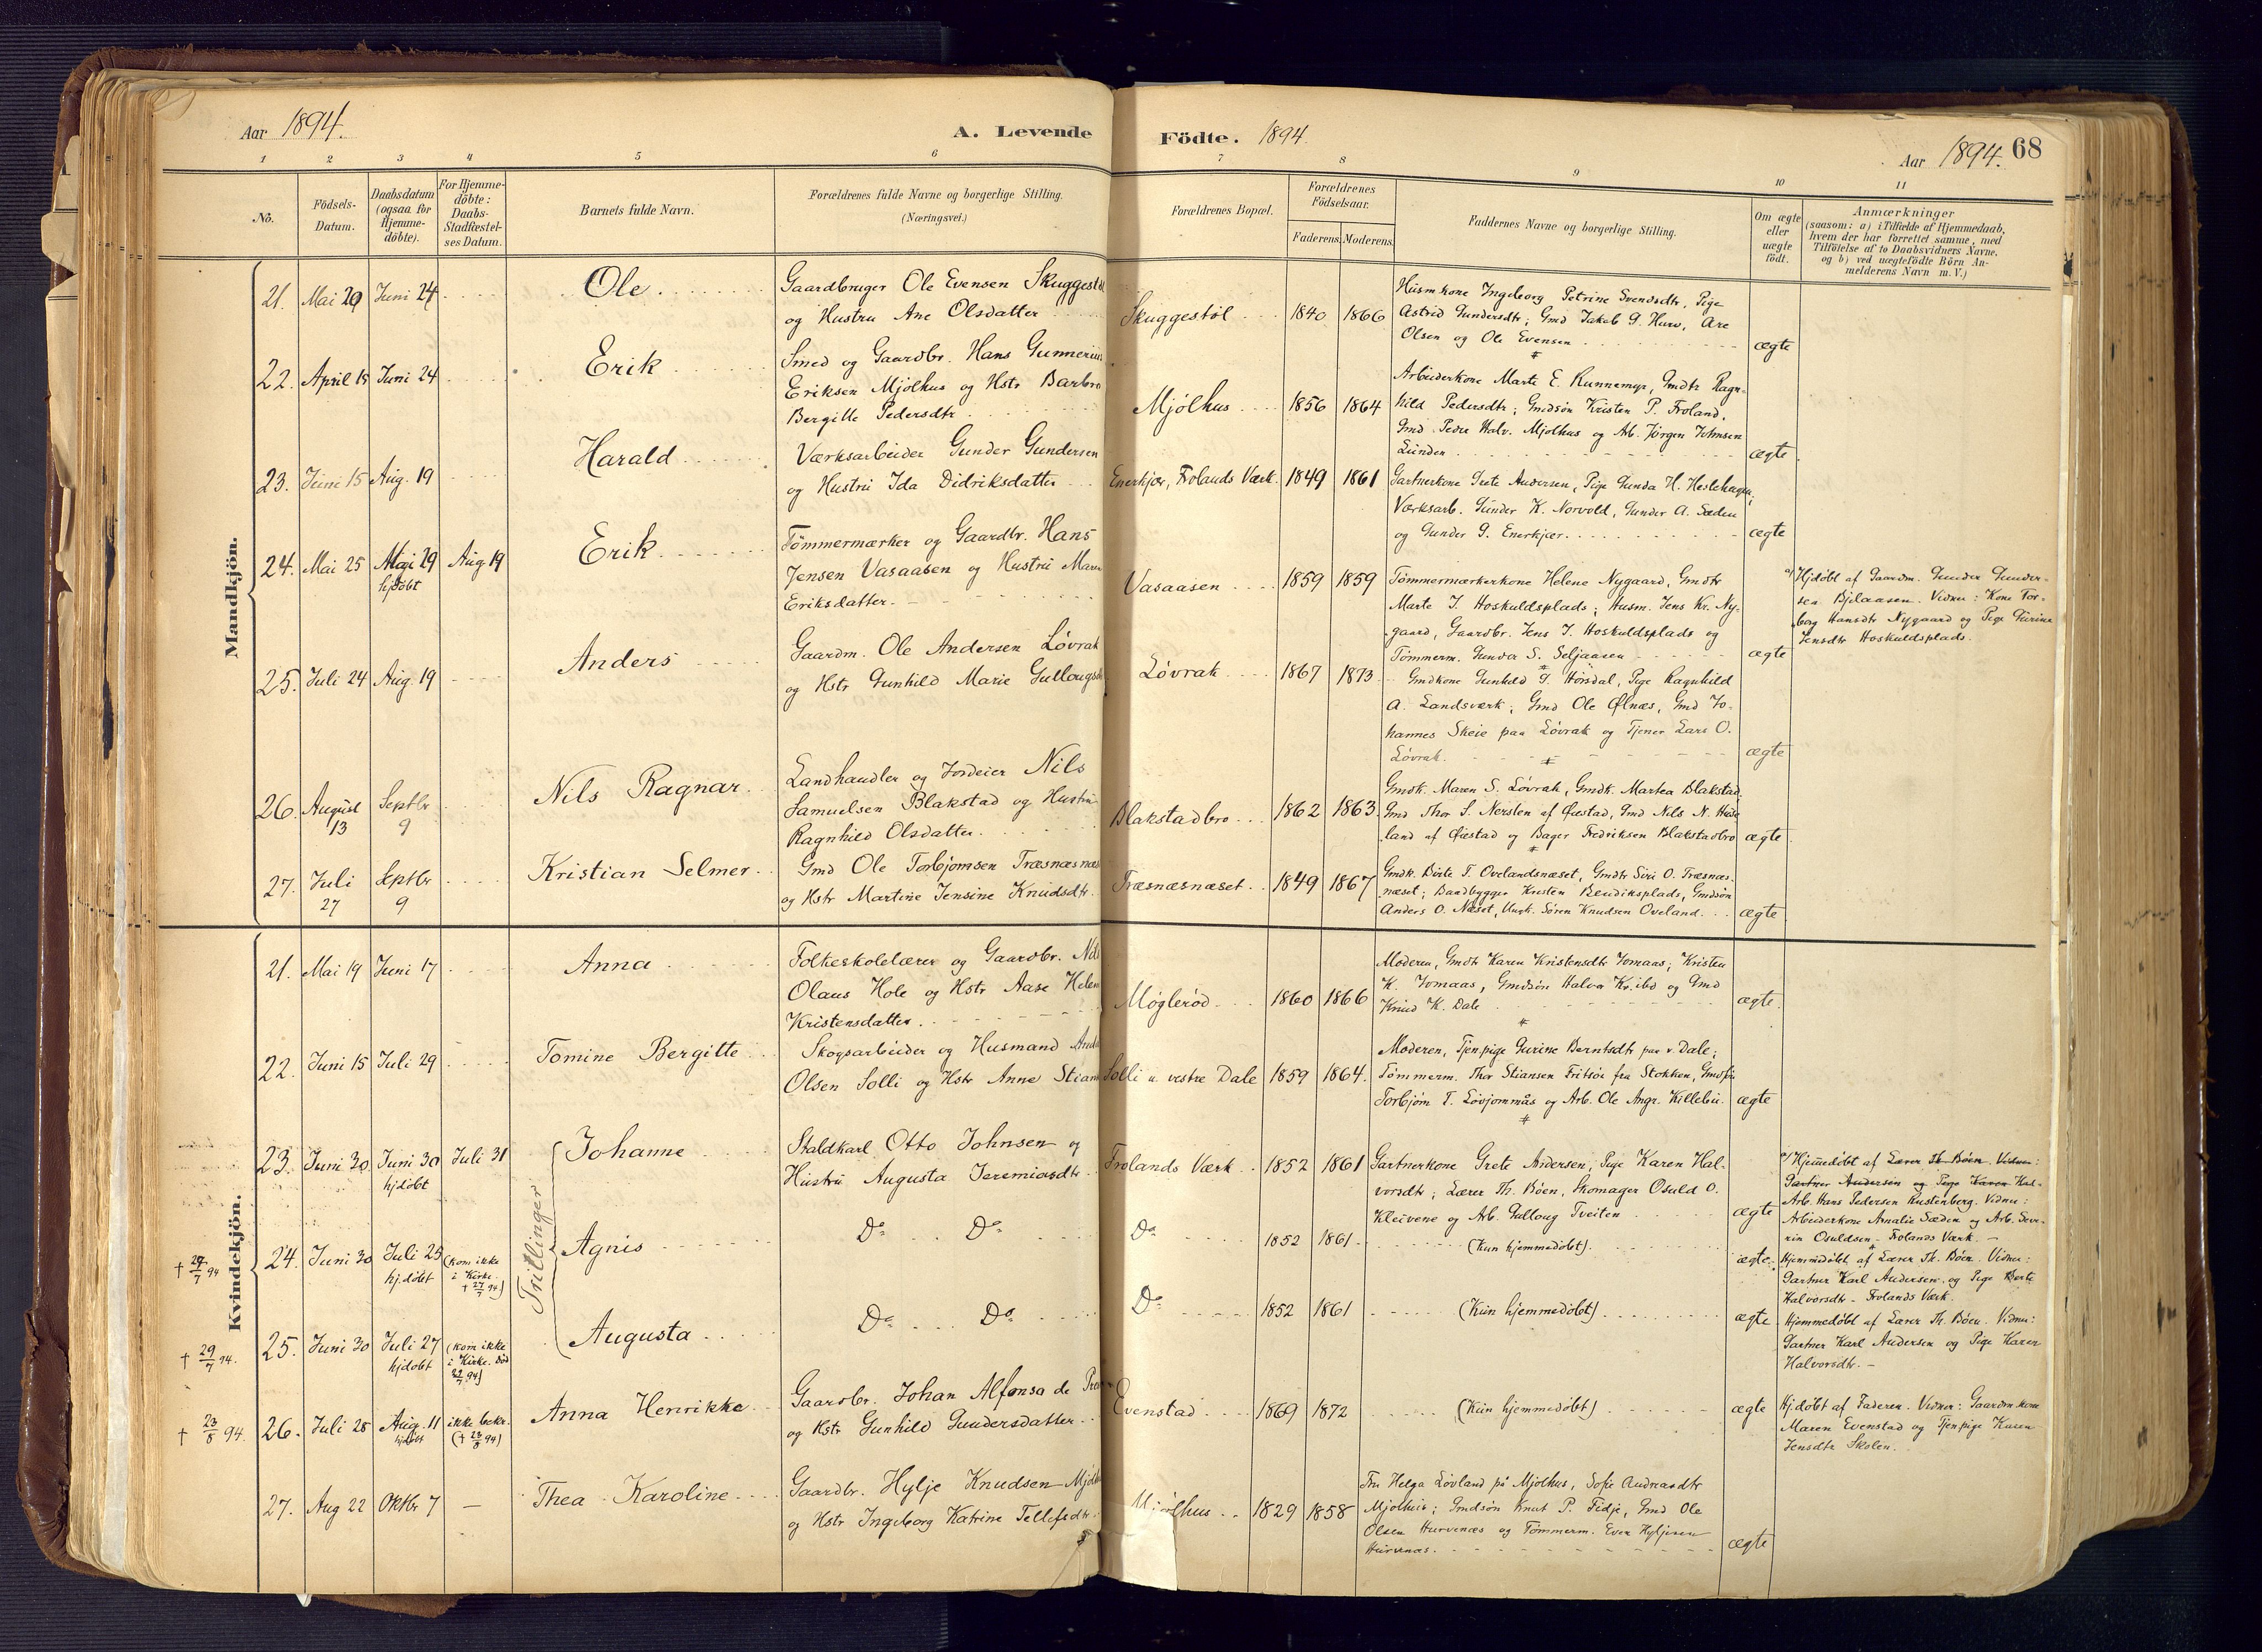 Aar 1894.
A. Levende
Födte. 1894
Aar 1894. 68
1 2 3 4 5 6 7 8 9 10 11
No.
Födsels-
Datum.
Daabsdatum
(ogsaa for
Hjemme-
döbte).
For Hjemme-
döbte:
Daabs-
Stadfæstel-
ses Datum.
Barnets fulde Navn.
Forældrenes fulde Navne og borgerlige Stilling.
(Næringsvei.)
Forældrenes Bopæl.
Forældrenes
Födselsaar.
Faderens. Moderens.
Faddernes Navne og borgerlige Stilling.
Om ægte
eller
uægte
födt.
Anmærkninger
(saasom: a) i Tilfælde af Hjemmedaab,
hvem der har forrettet samme, med
Tilföielse af to Daabsvidners Navne,
og b) ved uægtefödte Börn An-
melderens Navn m. V.)
Mandkjön.
21. Mai 29 Juni 24 Ole
Gaardbruger Ole Evensen Skuggestöl
og Hustru Ane Olsdatter
Skuggestöl 1840 1866
Husmkone Ingeborg Petrine Svendsdtr, Pige
Astrid Gundersdtr; Gmd Jakob G. Hurv, Are
Olsen og Ole Evensen
ægte
22. April 15 Juni 24 Erik
Smed og Gaardbr. Hans Gunnerius
Eriksen Mjölhus og Hstr Barbro
Bergitte Pedersdtr
Mjölhus 1856 1864
Arbeiderkone Marte E. Runnemyr, Gmdtr Ragn-
hild Pedersdtr; Gmdsön Kristen P. Froland,
Gmd Peder Halv. Mjölhus og Arb. Jörgen Johnsen
Lunden
ægte
23. Juni 15 Aug. 19 Harald
Værksarbeider Gunder Gundersen
og Hustru Ida Didriksdatter
Enerkjær, Frolands Værk. 1849 1861
Gartnerkone Grete Andersen, Pige Gunda H. Heslehagen,
Værksarb. Gunder K. Norvold, Gunder A. Sæden
og Gunder G. Enerkjær.
ægte
24. Mai 25 Mai 29 Aug 19 Erik
hjdöbt
Tömmermærker og Gaardbr. Hans
Jensen Vasaasen og Hustru Maren
Eriksdatter.
Vasaasen 1859 1859
Tömmermærkerkone Helene Nygaard, Gmdtr
Marte J. Hoskuldsplads; Husm. Jens Kr. Ny-
gaard, Gaardbr. Jens J. Hoskuldsplads og
Tömmerm. Gunder S. Seljaasen
ægte
a) Hjdöbt af Gaardm. Gunder Gunder-
sen Bjelaasen. Vidner: Kone Tor-
borg Hansdtr Nygaard og Pige Gurine
Jensdtr Hoskuldsplads.
25. Juli 24 Aug. 19 Anders
Gaardm. Ole Andersen Lövrak
og Hstr Gunhild Marie Gullaugsdr
Lövrak 1867 1873
Gmdkone Gunhild G. Hörsdal, Pige Ragnhild
A. Landsværk; Gmd Ole Ölnæs, Gmd Jo-
hannes Skeie paa Lövrak og Tjener Lars O.
Lövrak.
ægte
26. August 13 Septbr 9 Nils Ragnar
Landhandler og Jordeier Nils
Samuelsen Blakstad og Hustru
Ragnhild Olsdatter.
Blakstadbro 1862 1863
Gmdk. Maren S. Lövrak, Gmdk. Martea Blakstad,
Gmd Thor S. Nersten af Öiestad, Gmd Nils N.
land af Öiestad og Bager Fredriksen Blakstadbro
ægte
27. Juli 27 Septbr 9 Kristian Selmer
Gmd Ole Torbjornsen Træsnæsnæs
og Hstr Martine Jensine Knudsdtr.
Træsnæsnæset 1849 1867
Gmdk. Birte T. Ovelandsnæset, Gmdtr Siri O. Træsnæs-
næset; Baadbygger Kristen Bendiksplads, Gmdsön
Anders O. Næset, Ungk. Sören Knudsen Oveland.
ægte
Kvindekjön.
21. Mai 19 Juni 17 Anna
Folkeskolelærer og Gaardbr. Nils
Olaus Hole og Hstr Aase Helen
Kristensdatter.
Mögleröd 1860 1866
Moderen, Gmdtr Karen Kristensdtr Jomaas; Kristen
K. Jomaas, Gmdsön Halvor Kr. ibd og Gmd
Knud K. Dale
ægte
22. Juni 15 Juli 29 Tomine Bergitte
Skogsarbeider og Husmand
Olsen Solli og Hstr Anne
Solli u. vestre Dale 1859 1864.
Moderen, Tjenpige Gurine Berntsdtr paa v. Dale;
Tömmerm. Thor Stiansen Fritsöe fra Stokken,
Torbjörn T. Lövjommås og Arb. Ole Angr. Killebu.
ægte
Trillinger
23. Juni 30 Juni 30 Juli 31 Johanne
hjdöbt
Staldkarl Otto Johnsen og
Hustru Augusta Jeremiasdtr
Frolands Værk 1852 1861
Gartnerkone Grete Andersen, Pige Karen Hal-
vorsdtr; Lærer Th. Böen, Skomager Osuld O.
Kleivene og Arb. Gulloug Tveiten
ægte
a) Hjemmedöbt af Lærer Th. Böen. Vidner:
Gartner Andersen og Pige Karen Hal-
Arb. Hans Pedersen Rustenberg. Vidner:
Arbeiderkone Amalie Sæden og Arb. Seve-
rin Osuldsen - Frolands Værk. -
† 27/7 94 24. Juni 30 Juli 25 (kom ikke Agnis
hjdöbt i Kirke.
† 27/7 94)
Do Do Do 1852 1861 (Kun hjemmedöbt) ægte
Hjemmedöbt af Lærer Th. Böen. Vidner:
Gartner Karl Andersen og Pige Berte
Halvorsdtr - Frolands Værk.
† 29/7 94. 25. Juni 30 Juli 27 (kom ikke Augusta
hjdöbt i Kirke. Död
29/7 94)
Do Do Do 1852 1861 (Kun hjemmedöbt) ægte
Hjemmedöbt af Lærer Th. Böen. Vidner:
Gartner Karl Andersen og Pige Karen
Halvorsdtr. -
† 23/8 94. 26. Juli 28 Aug. 11 ikke bekr. Anna Henrikke
hjdöbt († 23/8 94)
Gaardbr. Johan Alfonsa de
og Hstr Gunhild Gundersdatter
Evenstad 1869 1872 (Kun hjemmedöbt) ægte
Hjdöbt af Faderen. Vidner: Gaardmkone
Maren Evenstad og Tjenpige Karen
Jensdtr Skolen.
27. Aug 22 Oktbr 7 — Thea Karoline
Gaardbr. Hylje Knudsen
og Hstr Ingeborg Katrine Tellefsdtr.
Mjölhus 1829 1858
Fru Helga Lövland på Mjölhus, Sofie Andreasdtr
Mjölhus; Gmdsön Knut P. Fidje, Gmd Ole
Olsen Hurvenæs og Tömmerm. Even Hyljesen
Hurvenæs.
ægte